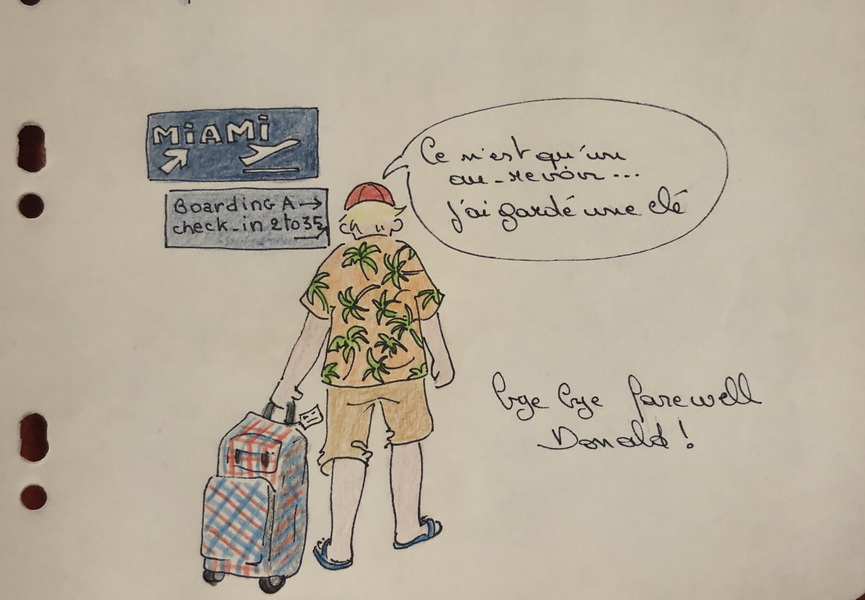 MiAMi
Boarding A →
check-in 2 to 35
Ce n'est qu'un
au-revoir...
j'ai gardé une clé
bye bye farewell
Donald !